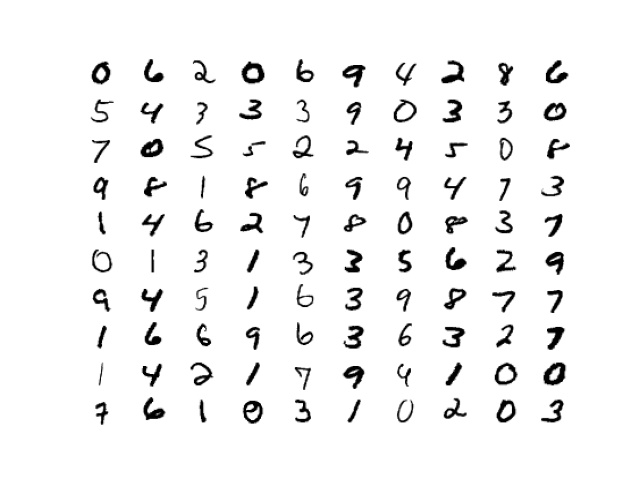 0 6 2 0 6 9 4 2 8 6
5 4 3 3 3 9 0 3 3 0
7 0 5 5 2 2 4 5 0 8
9 8 1 8 6 9 9 4 7 3
1 4 6 2 7 8 0 8 3 7
0 1 3 1 3 3 5 6 2 9
9 4 5 1 6 3 9 8 7 7
1 6 6 9 6 3 6 3 2 7
1 4 2 1 7 9 4 1 0 0
7 6 1 0 3 1 0 2 0 3